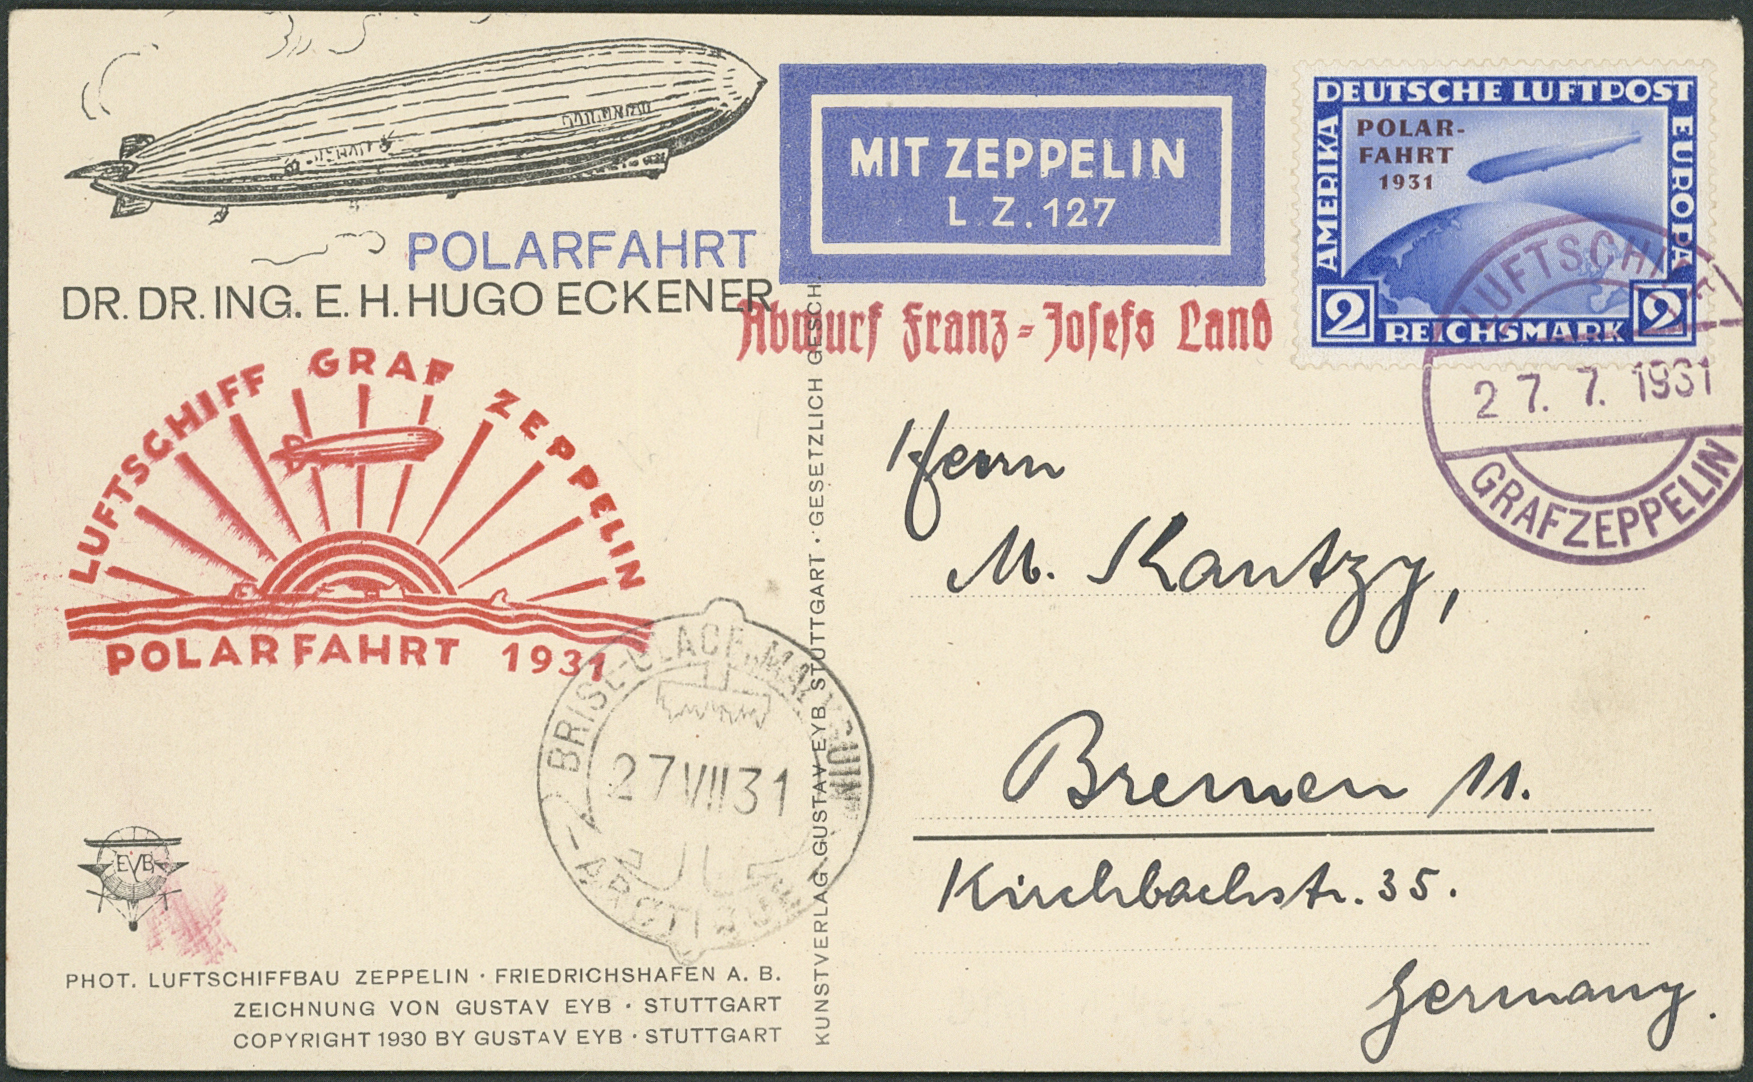 POLARFAHRT
DR. DR. ING. E. H. HUGO ECKENER
MIT ZEPPELIN
L. Z. 127
DEUTSCHE LUFTPOST
AMERIKA
EUROPA
POLAR-
FAHRT
1931
2 REICHSMARK 2
Abwurf Franz=Josefs Land
LUFTSCHIFF
27. 7. 1931
GRAF ZEPPELIN
LUFTSCHIFF GRAF ZEPPELIN
POLARFAHRT 1931
BRISE-GLACE "MALYGUIN"
27 VII 31
ARCTIQUE
Herrn
M. Kantzy,
Bremen 11.
Kirchbachstr. 35.
Germany.
EYB
PHOT. LUFTSCHIFFBAU ZEPPELIN · FRIEDRICHSHAFEN A. B.
ZEICHNUNG VON GUSTAV EYB · STUTTGART
COPYRIGHT 1930 BY GUSTAV EYB · STUTTGART
KUNSTVERLAG GUSTAV EYB, STUTTGART · GESETZLICH GESCH